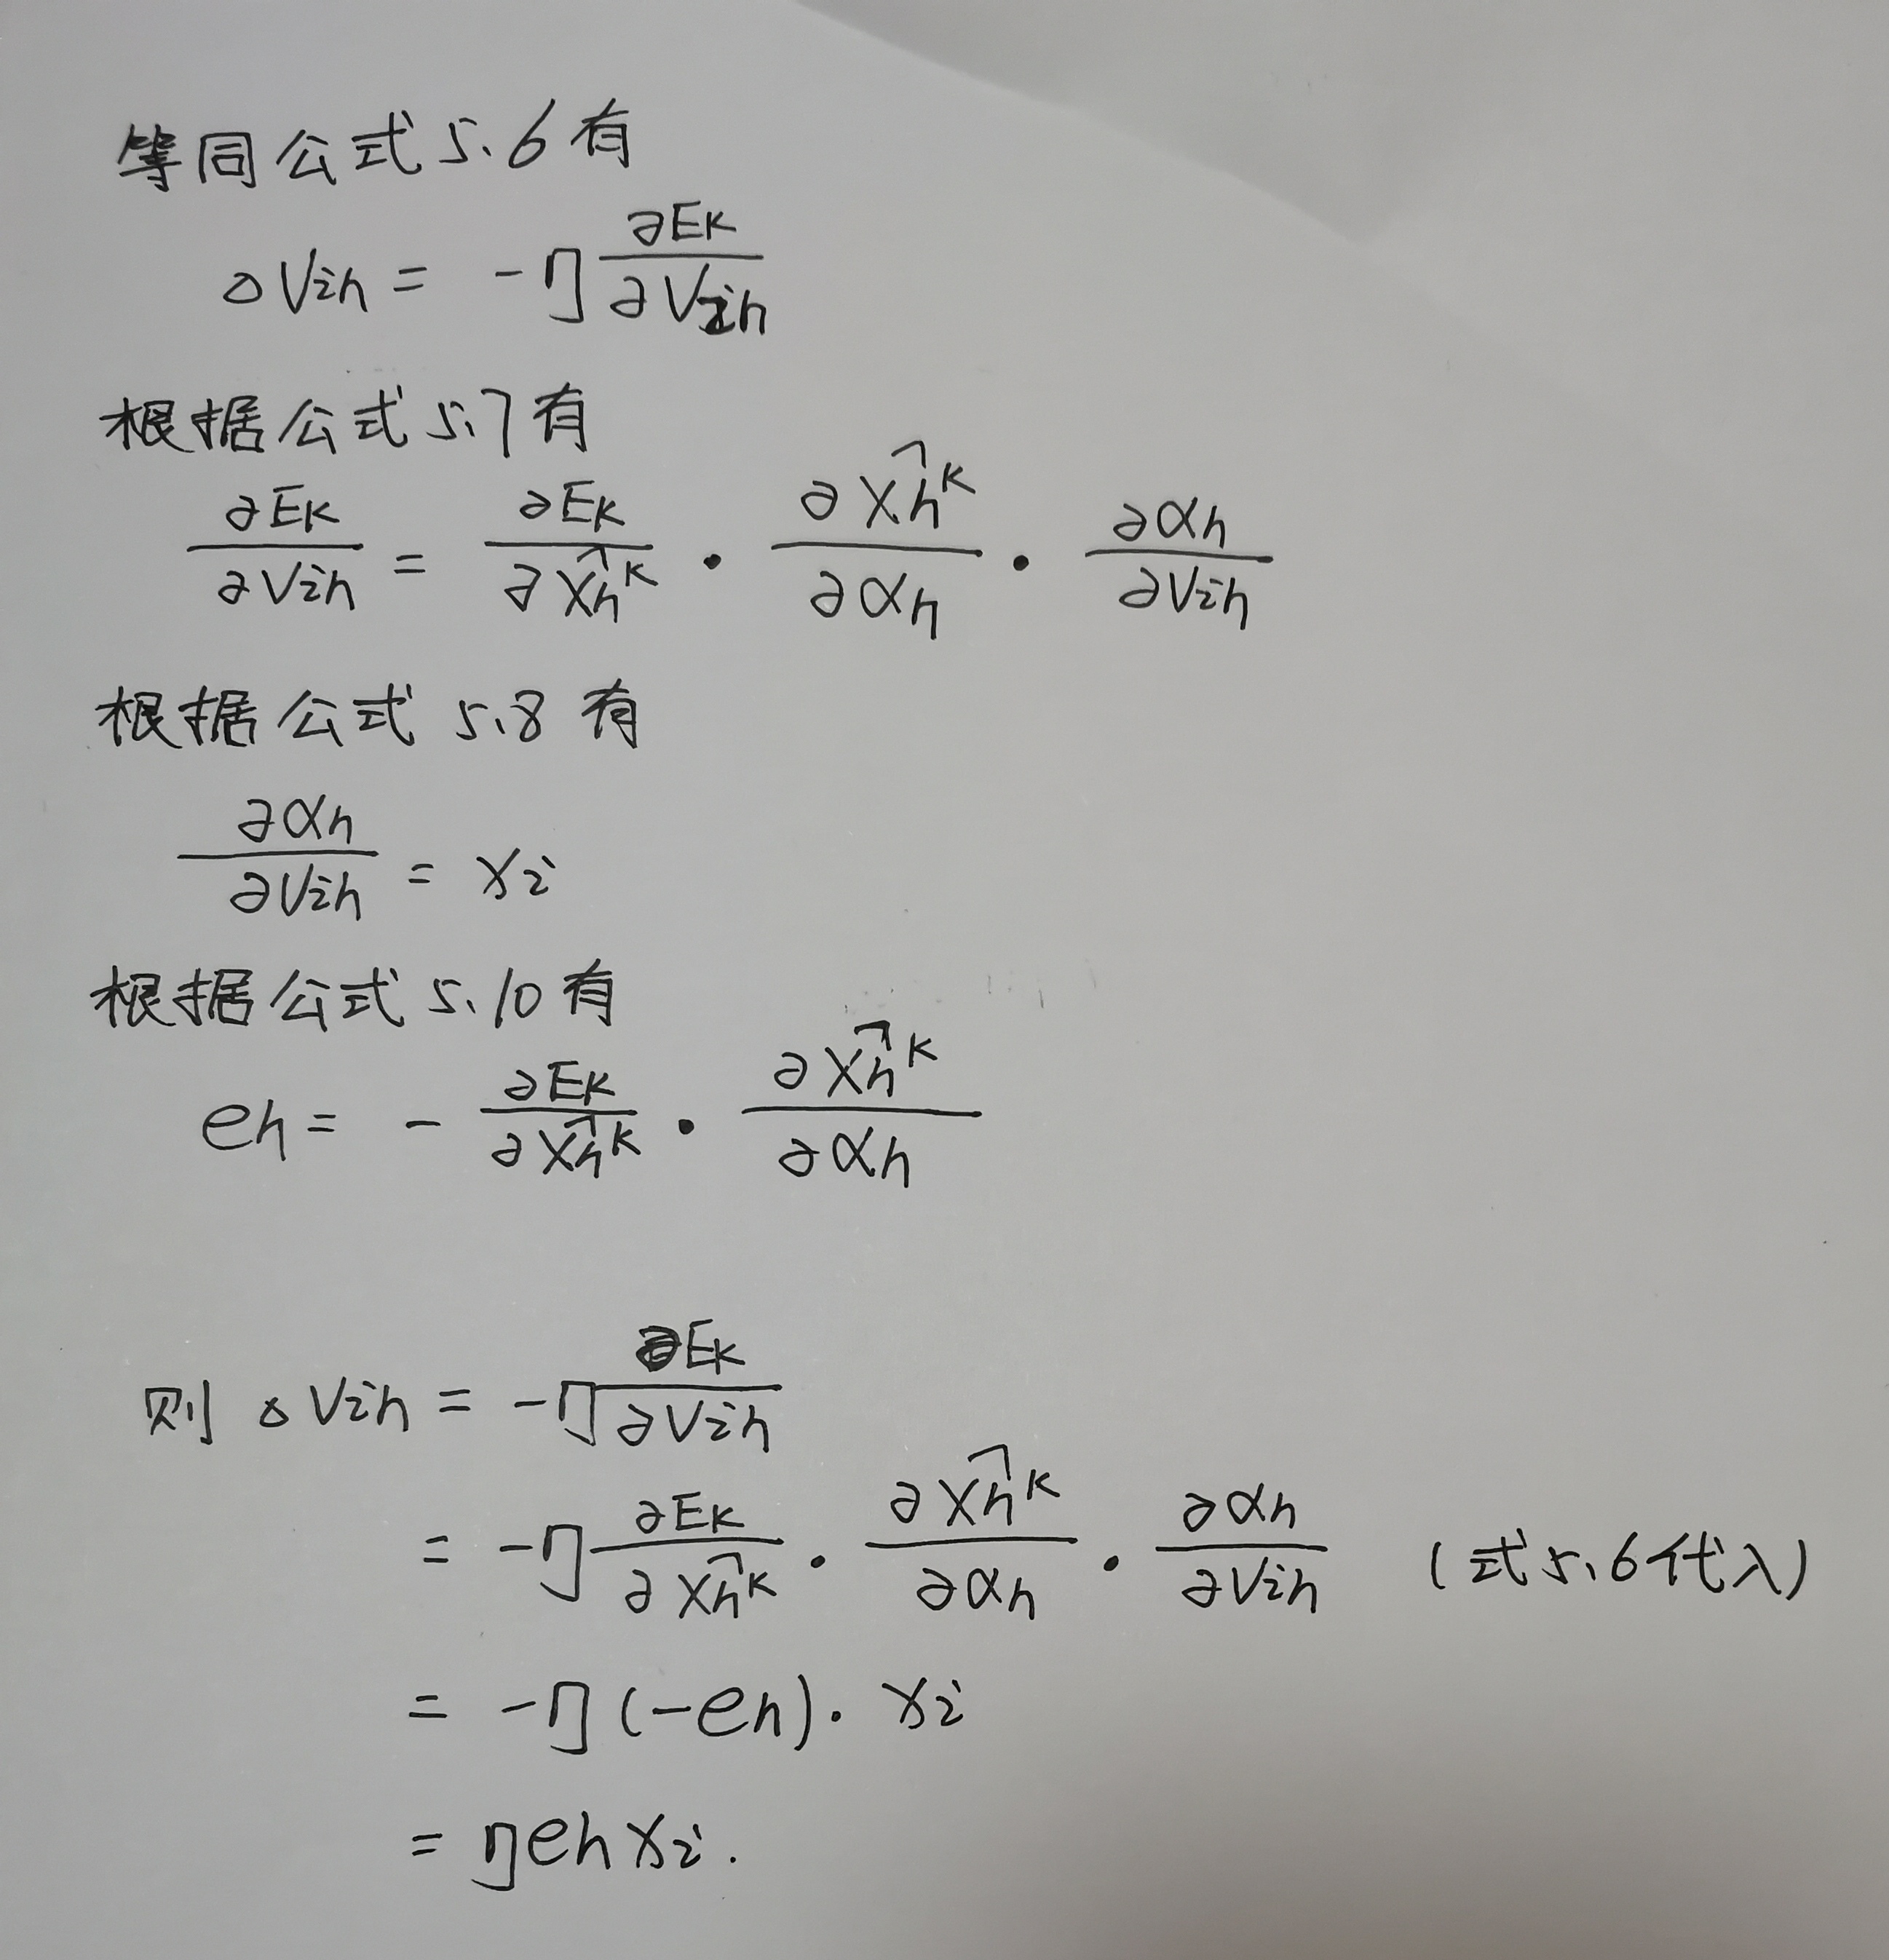 等同公式5.6有
△Vih = -η ∂Ek/∂Vih
根据公式5.7有
∂Ek/∂Vih = ∂Ek/∂x̂h^k · ∂x̂h^k/∂αh · ∂αh/∂Vih
根据公式5.8有
∂αh/∂Vih = xi
根据公式5.10有
eh = - ∂Ek/∂x̂h^k · ∂x̂h^k/∂αh
则 △Vih = -η ∂Ek/∂Vih
= -η ∂Ek/∂x̂h^k · ∂x̂h^k/∂αh · ∂αh/∂Vih (式5.6代入)
= -η(-eh)· xi
= ηehxi.